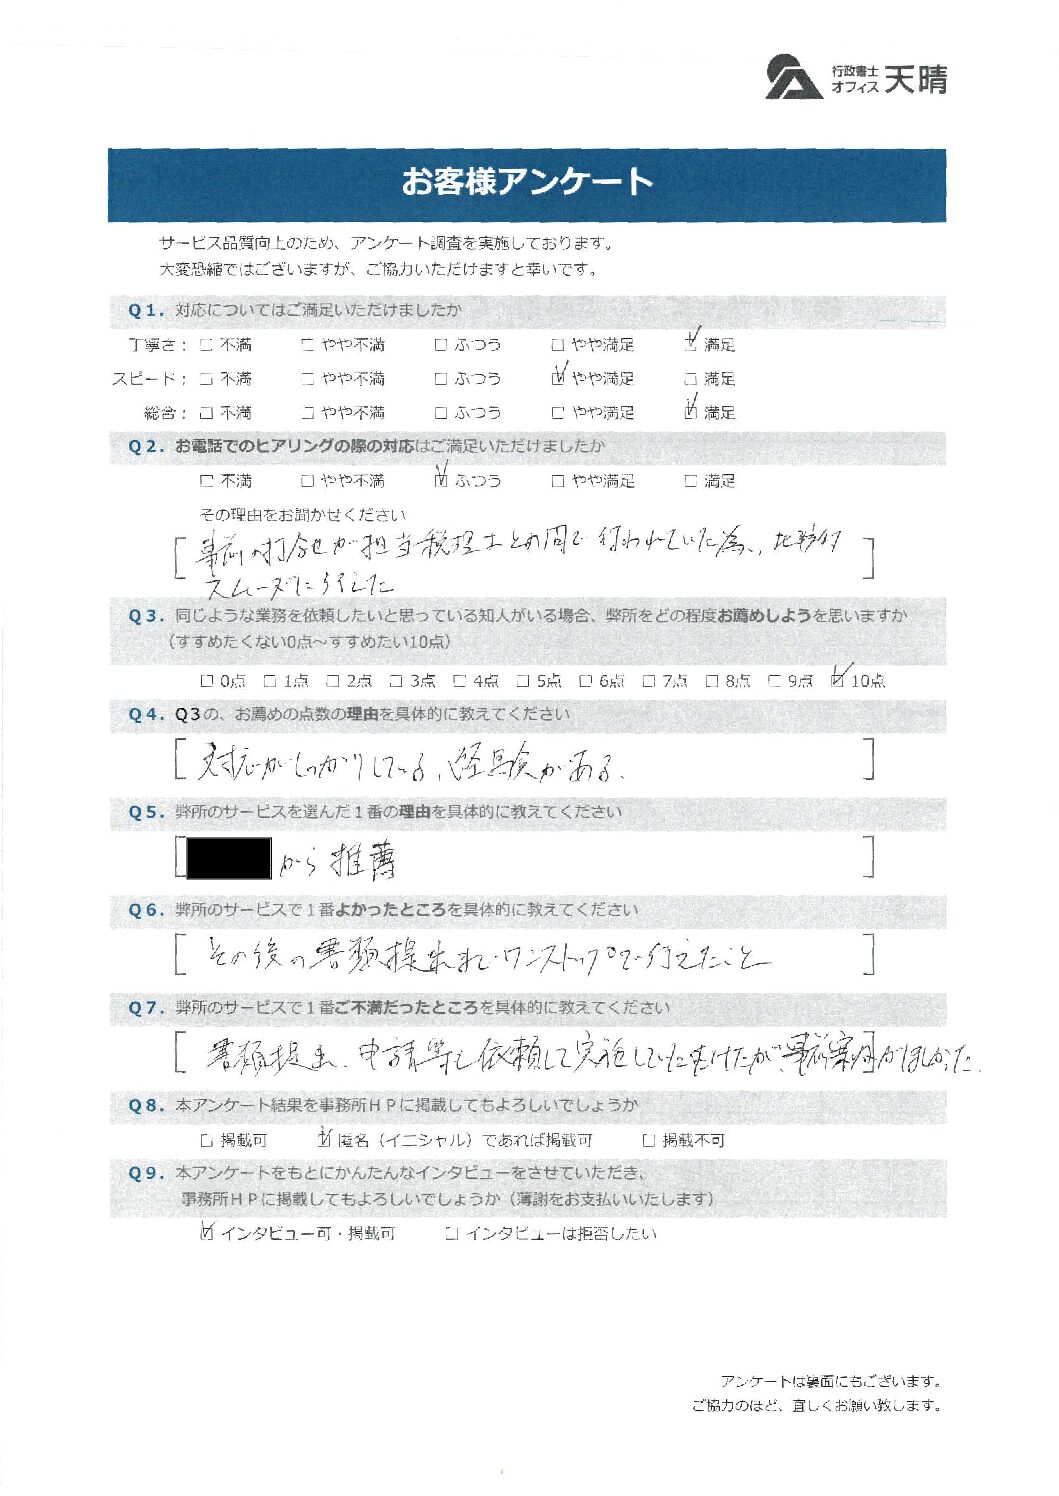 行政書士
オフィス 天晴
お客様アンケート
サービス品質向上のため、アンケート調査を実施しております。
大変恐縮ではございますが、ご協力いただけますと幸いです。
Q1. 対応についてはご満足いただけましたか
丁寧さ: □ 不満 □ やや不満 □ ふつう □ やや満足 ☑ 満足
スピード: □ 不満 □ やや不満 □ ふつう ☑ やや満足 □ 満足
総合: □ 不満 □ やや不満 □ ふつう □ やや満足 ☑ 満足
Q2. お電話でのヒアリングの際の対応はご満足いただけましたか
□ 不満 □ やや不満 ☑ ふつう □ やや満足 □ 満足
その理由をお聞かせください
事前の打合せが担当税理士との間で行われていた為、
スムーズに行えた
Q3. 同じような業務を依頼したいと思っている知人がいる場合、弊所をどの程度お薦めしようを思いますか
(すすめたくない0点～すすめたい10点)
□ 0点 □ 1点 □ 2点 □ 3点 □ 4点 □ 5点 □ 6点 □ 7点 □ 8点 □ 9点 ☑ 10点
Q4. Q3の、お薦めの点数の理由を具体的に教えてください
対応がしっかりしている、経験がある。
Q5. 弊所のサービスを選んだ１番の理由を具体的に教えてください
から推薦
Q6. 弊所のサービスで１番よかったところを具体的に教えてください
その後の書類提出までワンストップで行えたこと
Q7. 弊所のサービスで１番ご不満だったところを具体的に教えてください
書類提出、申請等も依頼して実施していただけたが、事前案内がほしかった。
Q8. 本アンケート結果を事務所ＨＰに掲載してもよろしいでしょうか
□ 掲載可 ☑ 匿名（イニシャル）であれば掲載可 □ 掲載不可
Q9. 本アンケートをもとにかんたんなインタビューをさせていただき、
事務所ＨＰに掲載してもよろしいでしょうか（薄謝をお支払いいたします）
☑ インタビュー可・掲載可 □ インタビューは拒否したい
アンケートは裏面にもございます。
ご協力のほど、宜しくお願い致します。